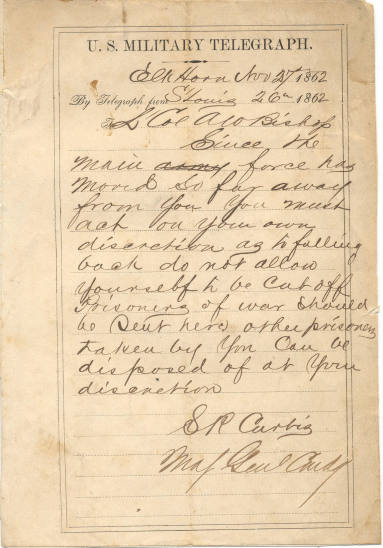 U. S. MILITARY TELEGRAPH.
Elk Horn Nov 27 1862
By Telegraph from St Louis 26th 1862
To L Col A W Bishop
Since the
main army force has
moved so far away
from you you must
act on your own
discretion as to falling
back do not allow
yourself to be cut off
Prisoners of war should
be sent here other prisoners
taken by you can be
disposed of at your
discretion
S R Curtis
Maj Genl Comdg